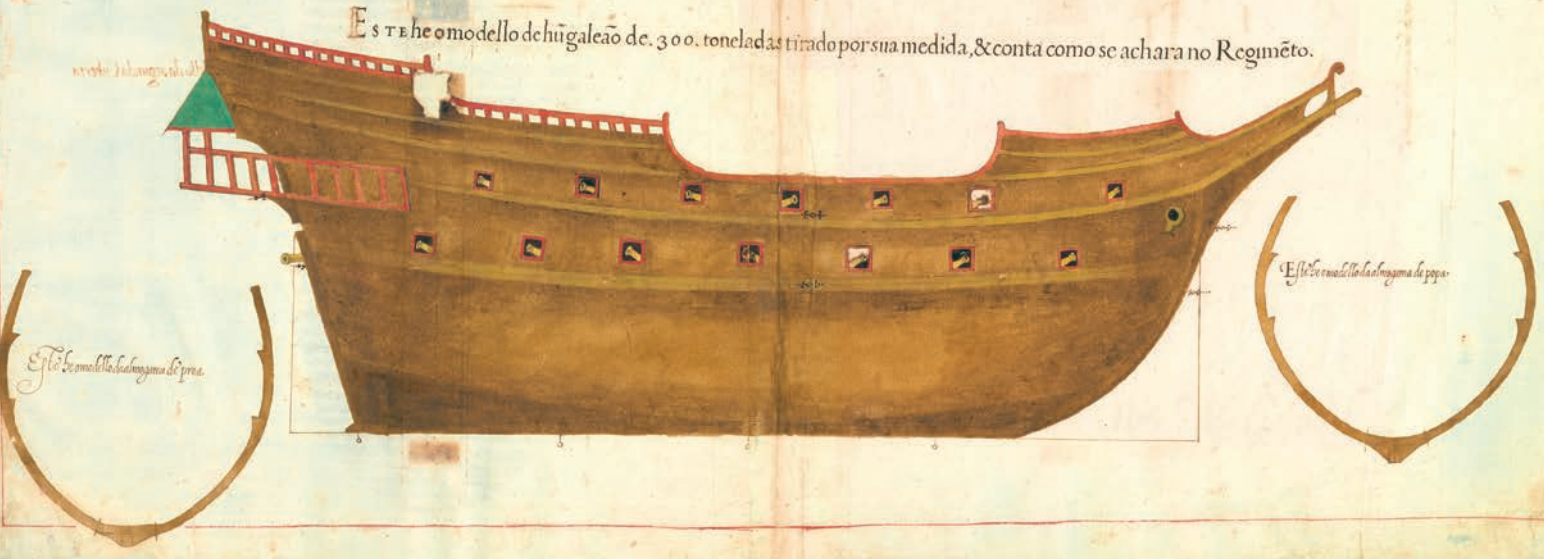 ESTE he o modello de hũ galeaõ de .300. toneladas tirado por sua medida, & conta como se achara no Regimẽto.
Este he o modello da almogama de popa.
Este he o modello da almogama de proa.